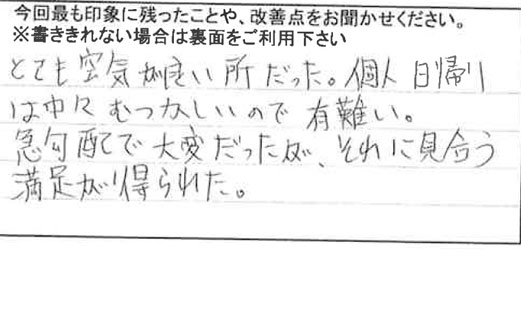 今回最も印象に残ったことや、改善点をお聞かせください。
※書ききれない場合は裏面をご利用下さい
とても空気が良い所だった。個人日帰り
は中々むつかしいので有難い。
急勾配で大変だったが、それに見合う
満足が得られた。